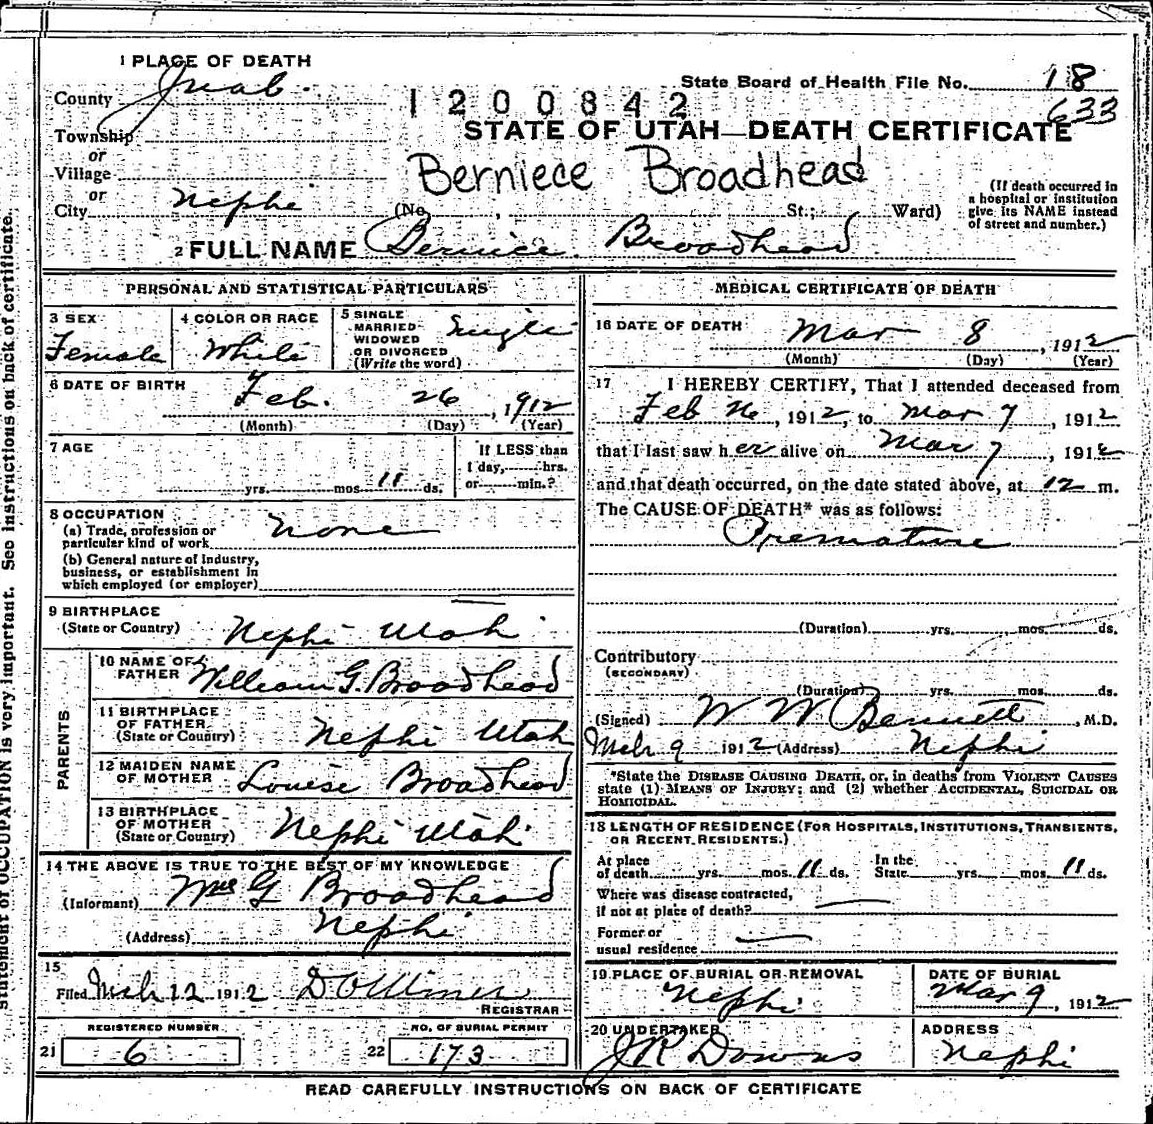 1 PLACE OF DEATH
County Juab.
State Board of Health File No. 18
633
1200842
STATE OF UTAH—DEATH CERTIFICATE
Township
or
Village
or
City Nephi
Berniece Broadhead
(No. , St.; Ward)
(If death occurred in a hospital or institution give its NAME instead of street and number.)
2 FULL NAME Bernice Broadhead
PERSONAL AND STATISTICAL PARTICULARS
3 SEX Female
4 COLOR OR RACE White
5 SINGLE MARRIED WIDOWED OR DIVORCED (Write the word) Single
6 DATE OF BIRTH Feb. 26, 1912
(Month) (Day) (Year)
7 AGE yrs. mos. 11 ds.
If LESS than 1 day, hrs. or min.?
8 OCCUPATION
(a) Trade, profession or particular kind of work none
(b) General nature of Industry, business, or establishment in which employed (or employer)
9 BIRTHPLACE
(State or Country) Nephi Utah
PARENTS
10 NAME OF FATHER William G. Broadhead
11 BIRTHPLACE OF FATHER (State or Country) Nephi Utah
12 MAIDEN NAME OF MOTHER Louise Broadhead
13 BIRTHPLACE OF MOTHER (State or Country) Nephi Utah
14 THE ABOVE IS TRUE TO THE BEST OF MY KNOWLEDGE
(Informant) G Broadhead
(Address) Nephi
15
Filed Mch 12 1912
REGISTRAR
REGISTERED NUMBER
21 6
NO. OF BURIAL PERMIT
22 173
MEDICAL CERTIFICATE OF DEATH
16 DATE OF DEATH Mar 8, 1912
(Month) (Day) (Year)
17 I HEREBY CERTIFY, That I attended deceased from
Feb 26, 1912, to Mar 7, 1912
that I last saw her alive on Mar 7, 1912
and that death occurred, on the date stated above, at 12 m.
The CAUSE OF DEATH* was as follows:
Premature
(Duration) yrs. mos. ds.
Contributory
(SECONDARY)
(Duration) yrs. mos. ds.
(Signed) W W Bennett, M.D.
Mch 9 1912 (Address) Nephi
*State the DISEASE CAUSING DEATH, or, in deaths from VIOLENT CAUSES
state (1) MEANS OF INJURY; and (2) whether ACCIDENTAL, SUICIDAL OR
HOMICIDAL.
18 LENGTH OF RESIDENCE (FOR HOSPITALS, INSTITUTIONS, TRANSIENTS,
OR RECENT RESIDENTS.)
At place of death yrs. mos. 11 ds.
In the State yrs. mos. 11 ds.
Where was disease contracted,
if not at place of death?
Former or
usual residence
19 PLACE OF BURIAL OR REMOVAL
Nephi
DATE OF BURIAL
Mar 9, 1912
20 UNDERTAKER
J R Downs
ADDRESS
Nephi
READ CAREFULLY INSTRUCTIONS ON BACK OF CERTIFICATE
statement of OCCUPATION is very important. See instructions on back of certificate.